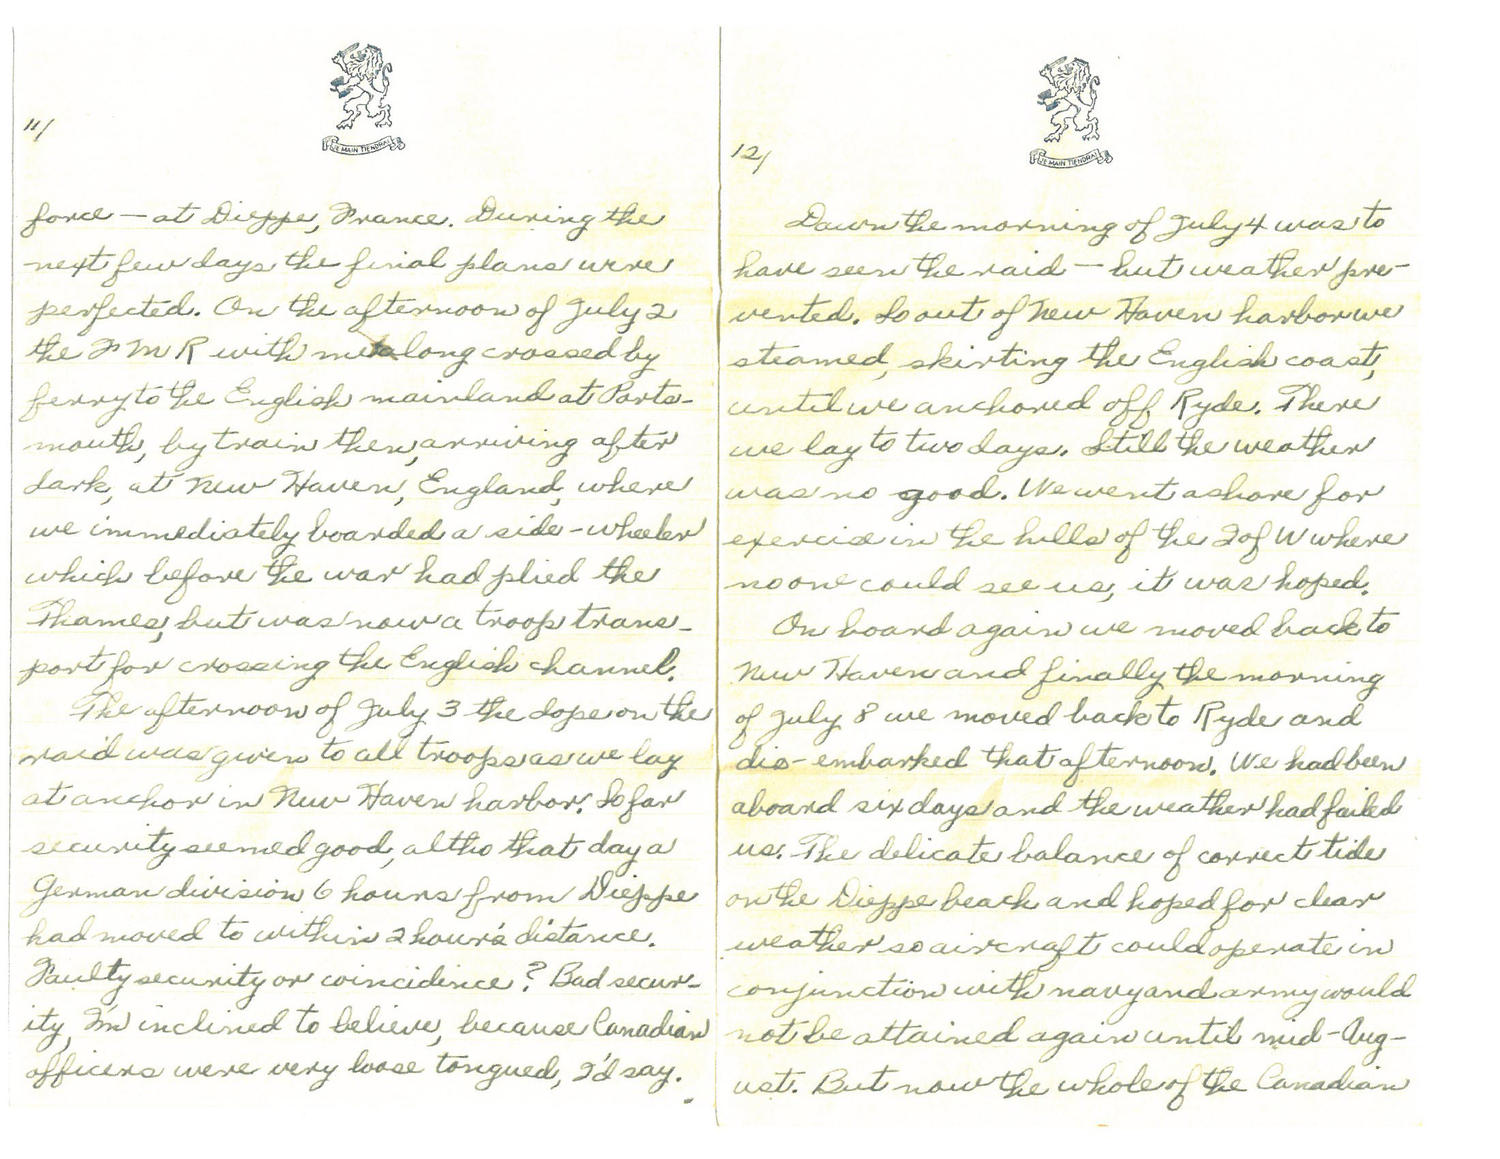 JE MAIN TIENDRAI
11/
force — at Dieppe, France. During the
next few days the final plans were
perfected. On the afternoon of July 2
the F M R with me along crossed by
ferry to the English mainland at Ports-
mouth, by train then, arriving after
dark, at New Haven, England, where
we immediately boarded a side-wheeler
which before the war had plied the
Thames, but was now a troop trans-
port for crossing the English channel.
The afternoon of July 3 the dope on the
raid was given to all troops as we lay
at anchor in New Haven harbor. So far
security seemed good, altho that day a
German division 6 hours from Dieppe
had moved to within 2 hour's distance.
Faulty security or coincidence? Bad secur-
ity, I'm inclined to believe, because Canadian
officers were very loose tongued, I'd say.
JE MAIN TIENDRAI
12/
Dawn the morning of July 4 was to
have seen the raid — but weather pre-
vented. So out of New Haven harbor we
steamed, skirting the English coast,
until we anchored off Ryde. There
we lay to two days. Still the weather
was no good. We went ashore for
exercise in the hills of the I of W where
no one could see us, it was hoped.
On board again we moved back to
New Haven and finally the morning
of July 8 we moved back to Ryde and
dis-embarked that afternoon. We had been
aboard six days and the weather had failed
us. The delicate balance of correct tide
on the Dieppe beach and hoped for clear
weather so aircraft could operate in
conjunction with navy and army would
not be attained again until mid-Aug-
ust. But now the whole of the Canadian